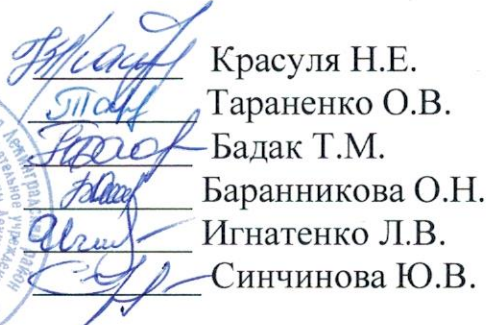 Красуля Н.Е.
Тараненко О.В.
Бадак Т.М.
Баранникова О.Н.
Игнатенко Л.В.
Синчинова Ю.В.